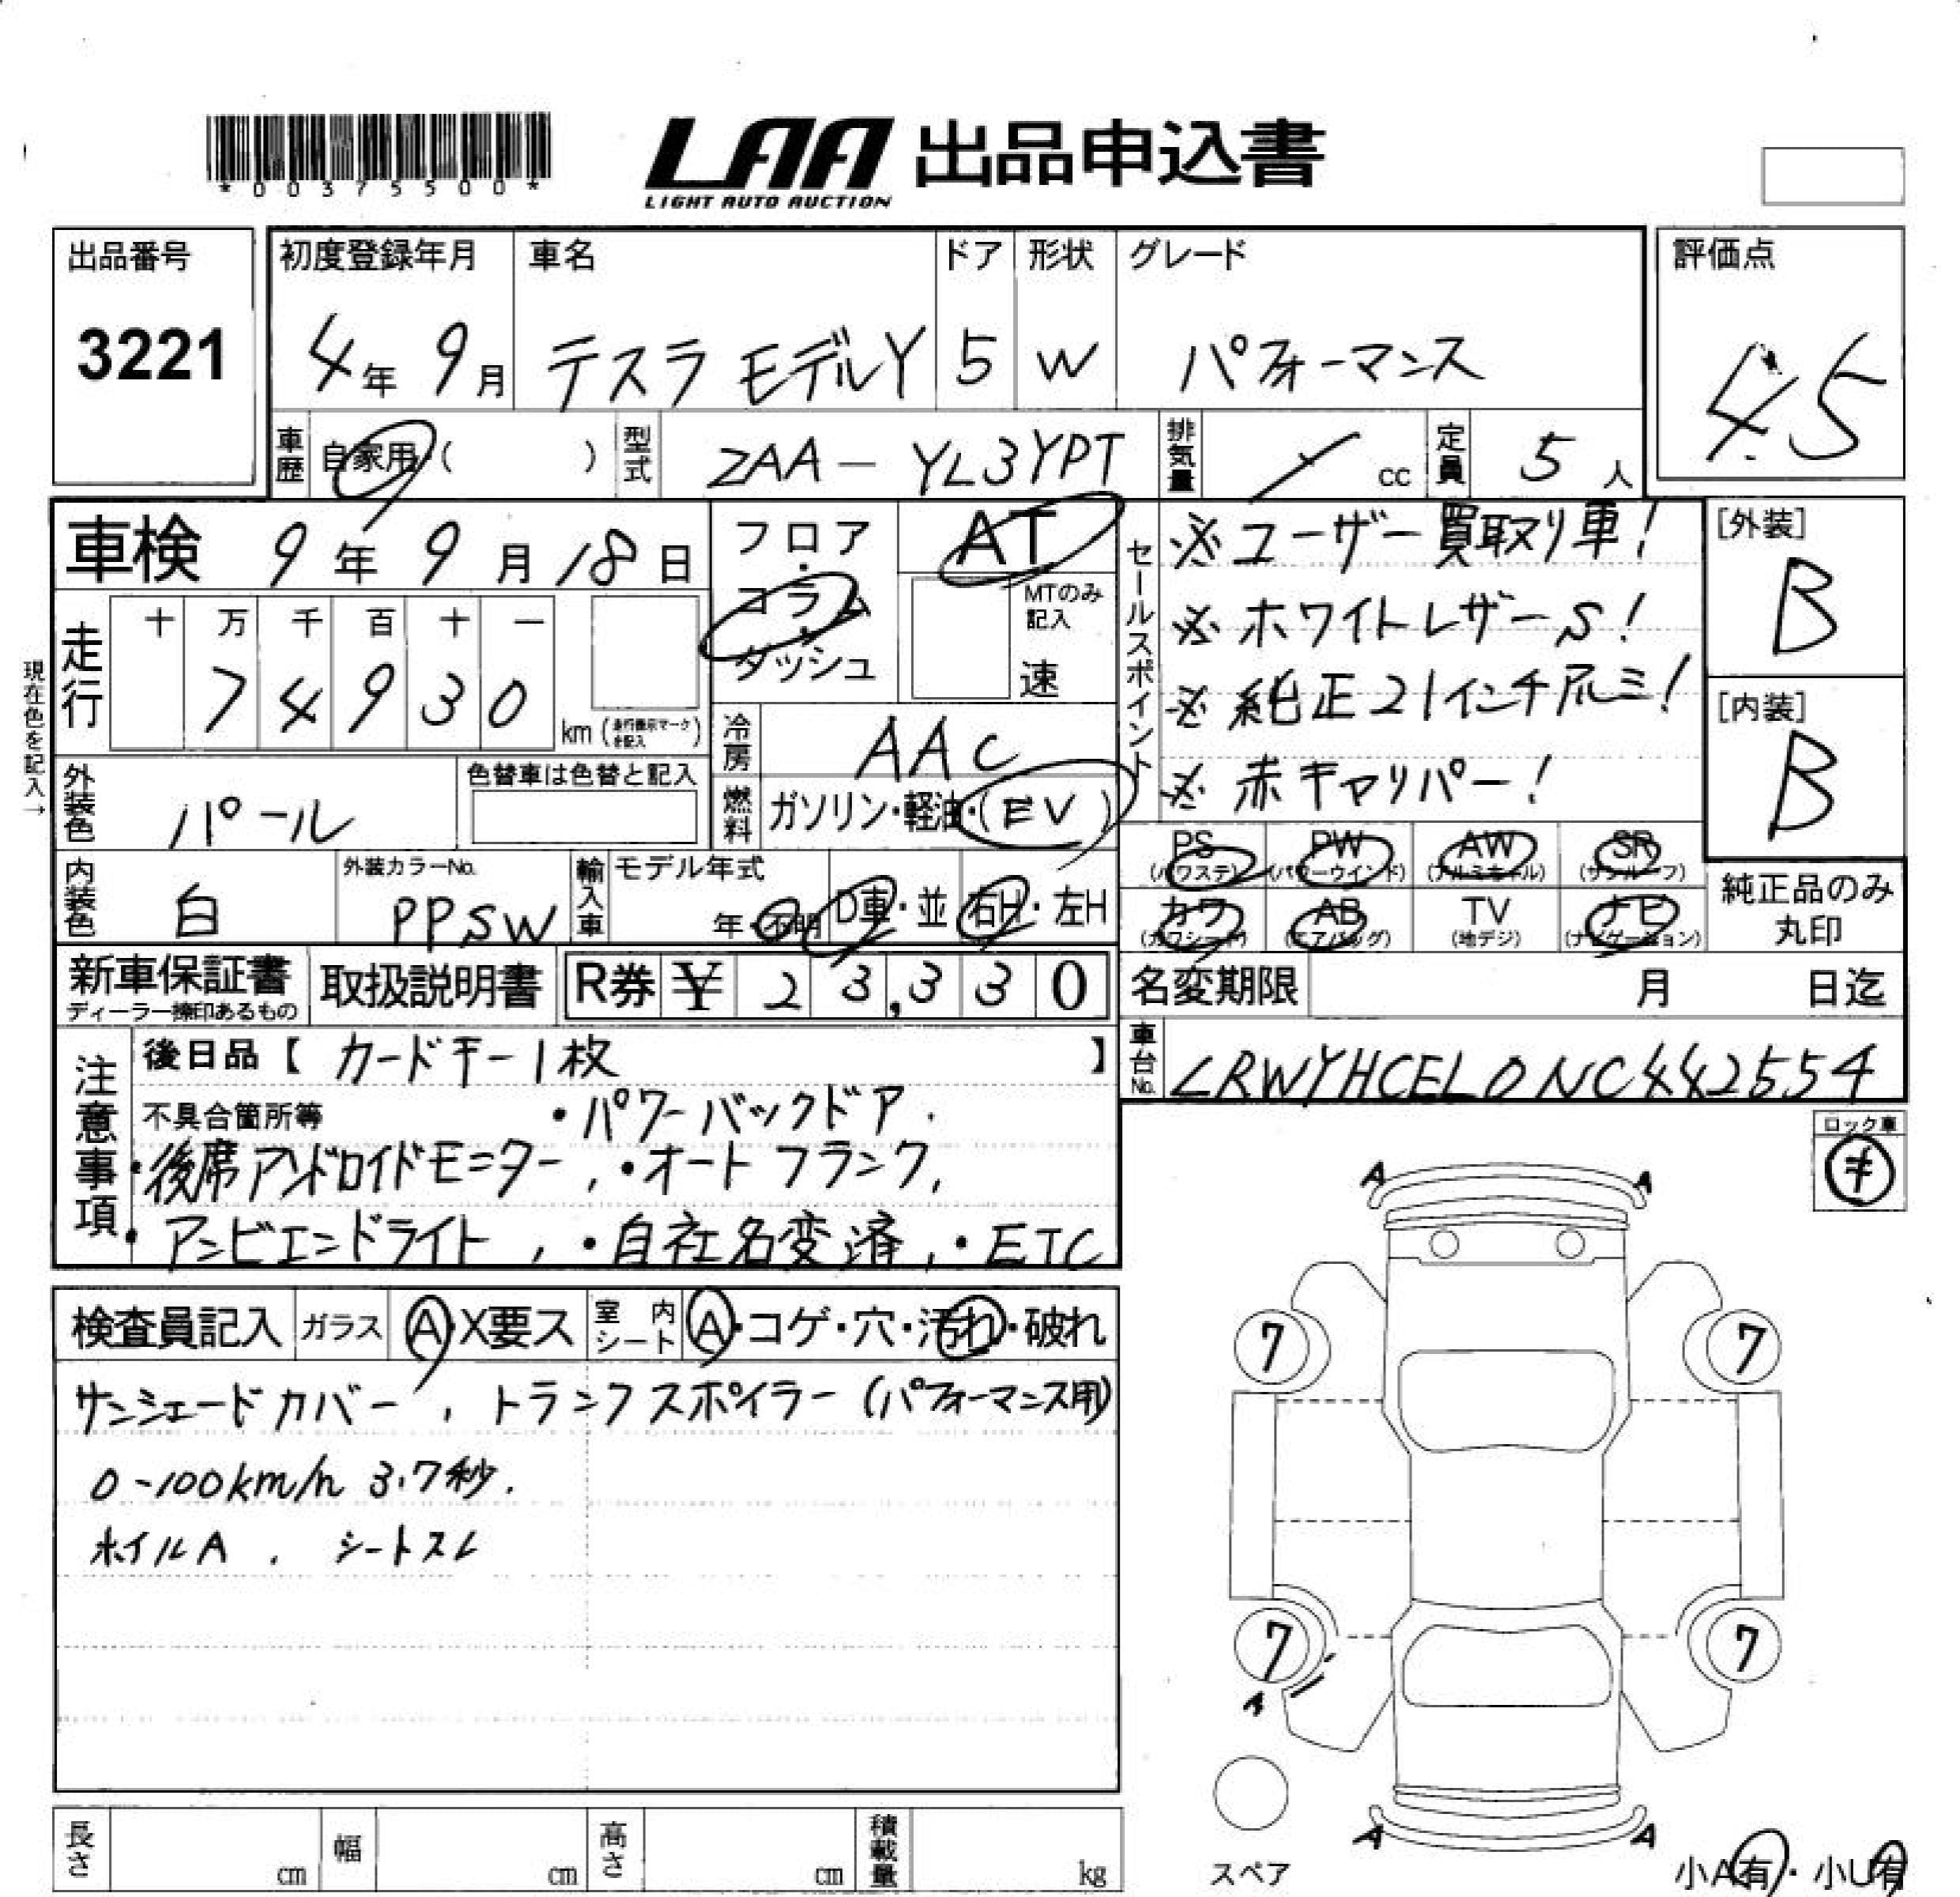 *00375500*
LAA 出品申込書
LIGHT AUTO AUCTION
出品番号
3221
初度登録年月
4年 9月
車名
テスラ モデルY
ドア
5
形状
W
グレード
パフォーマンス
評価点
4.5
車歴
自家用・( )
型式
ZAA-YL3YPT
排気量
cc
定員
5人
車検 9年 9月 18日
フロア・コラム・ダッシュ
AT
MTのみ記入
速
現在色を記入→
走行
十 万 千 百 十 一
7 4 9 3 0
km(走行表示マークを記入)
冷房
AAC
燃料
ガソリン・軽油・(EV)
外装色
パール
色替車は色替と記入
内装色
白
外装カラーNo.
PPSW
輸入車
モデル年式
年・不明
D車・並
右H・左H
セールスポイント
※ユーザー買取り車!
※ホワイトレザーS!
※純正21インチアルミ!
※赤キャリパー!
[外装]
B
[内装]
B
PS (パワステ) PW (パワーウインド) AW (アルミホイール) SR (サンルーフ)
カワ (カワシート) AB (エアバッグ) TV (地デジ) ナビ (ナビゲーション)
純正品のみ丸印
新車保証書
ディーラー捺印あるもの
取扱説明書
R券 ¥ 23,330
名変期限 月 日迄
車台No.
LRWYHCEL0NC442554
注意事項
後日品【 カードキー1枚 】
不具合箇所等 ・パワーバックドア.
・後席アンドロイドモニター, ・オートフランク,
・アンビエンドライト, ・自社名変済, ・ETC
ロック車
キ
検査員記入
ガラス A・X要ス
室内シート A・コゲ・穴・汚れ・破れ
サンシェードカバー, トランクスポイラー(パフォーマンス用)
0-100km/h 3.7秒.
ホイルA. シートスレ
A A
7 7
7 7
A A
スペア
小A有・小U有
長さ cm
幅 cm
高さ cm
積載量 kg